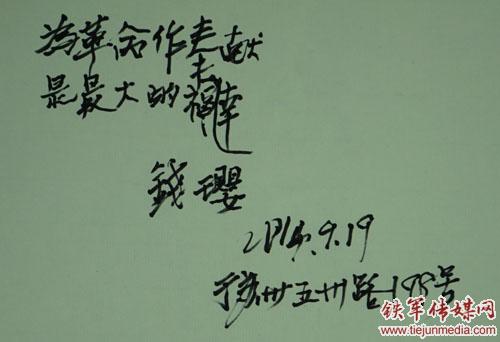 為革命作奉献
是最大的福
錢瓔
9.19
于苏州五卅路 号
铁军传媒网
www.tiejunmedia.com